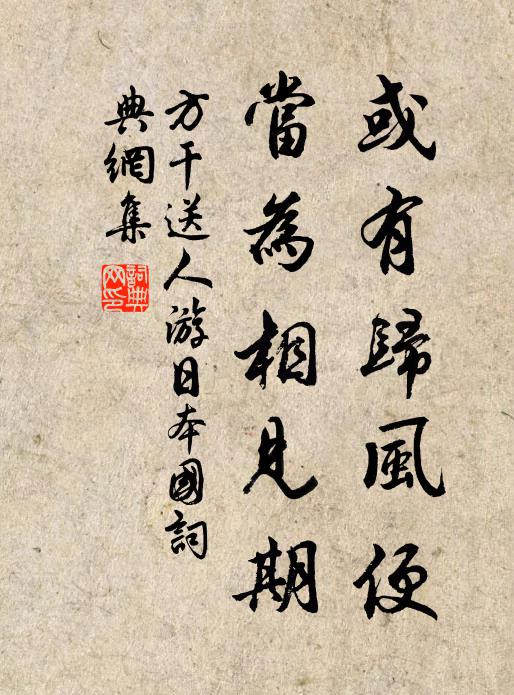 或有歸風便
當為相見期
方干送人游日本國詞
典網集
詞典
网印